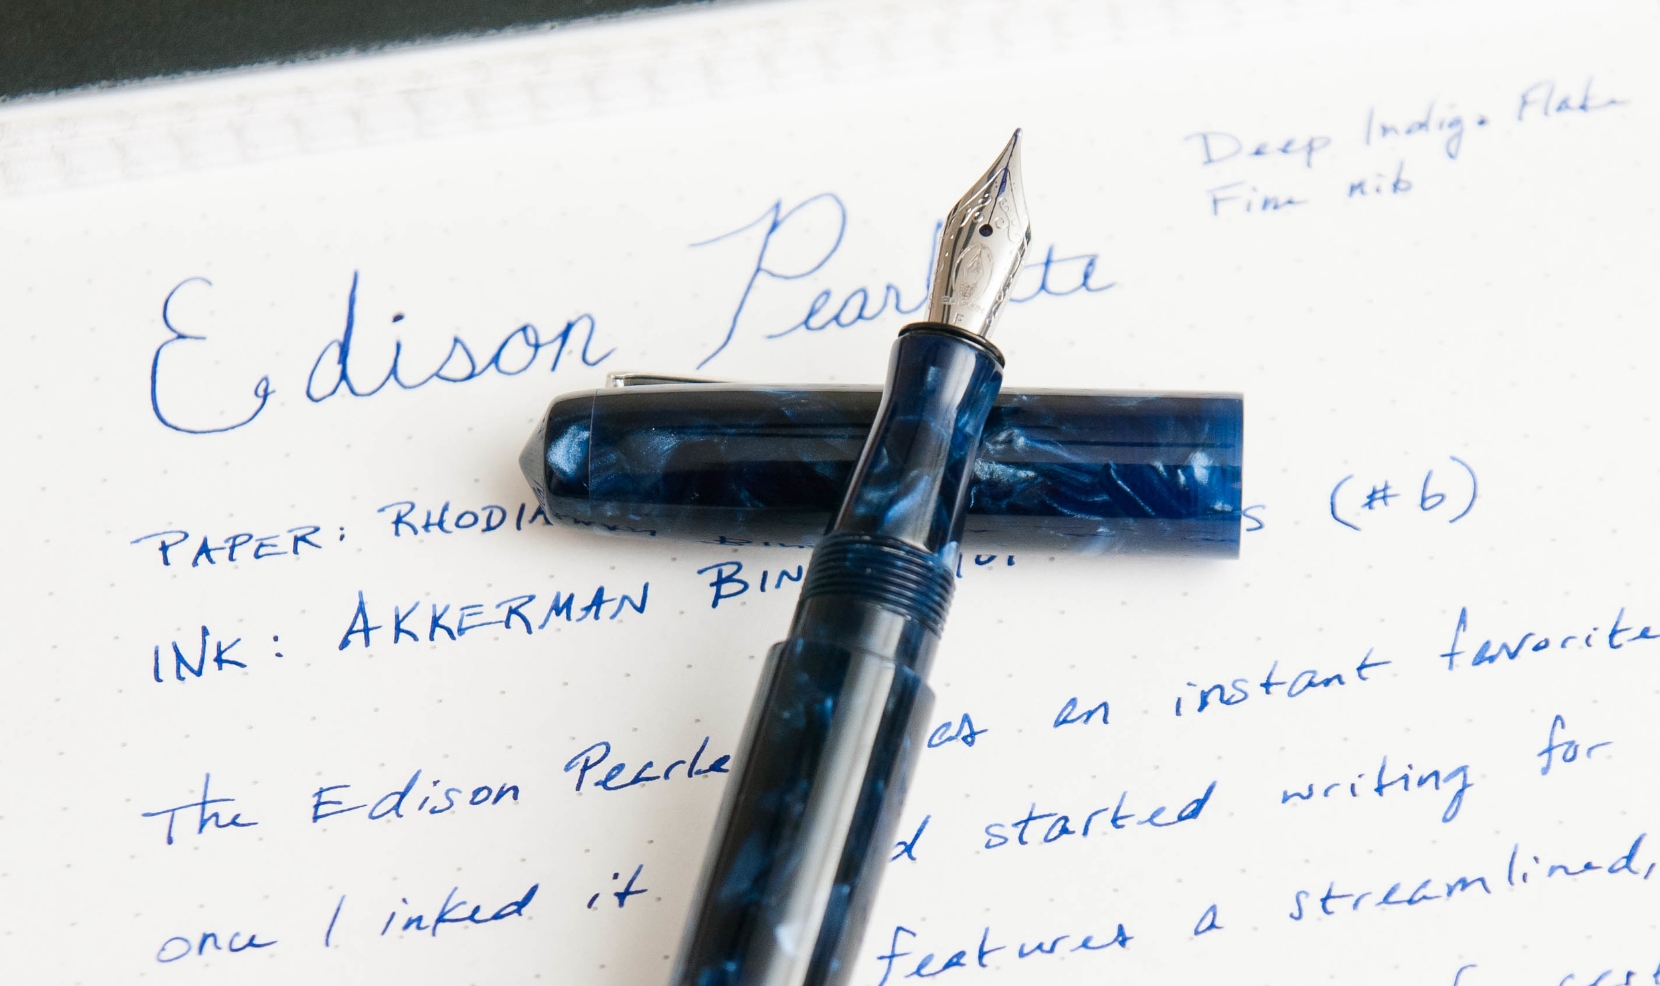 Deep Indigo Flake
Fine nib
Edison Pearlette
PAPER: RHODIA
INK: AKKERMAN BIN (#6)
The Edison Pearle as an instant favorite
once I inked it d started writing for
features a streamlined,
F